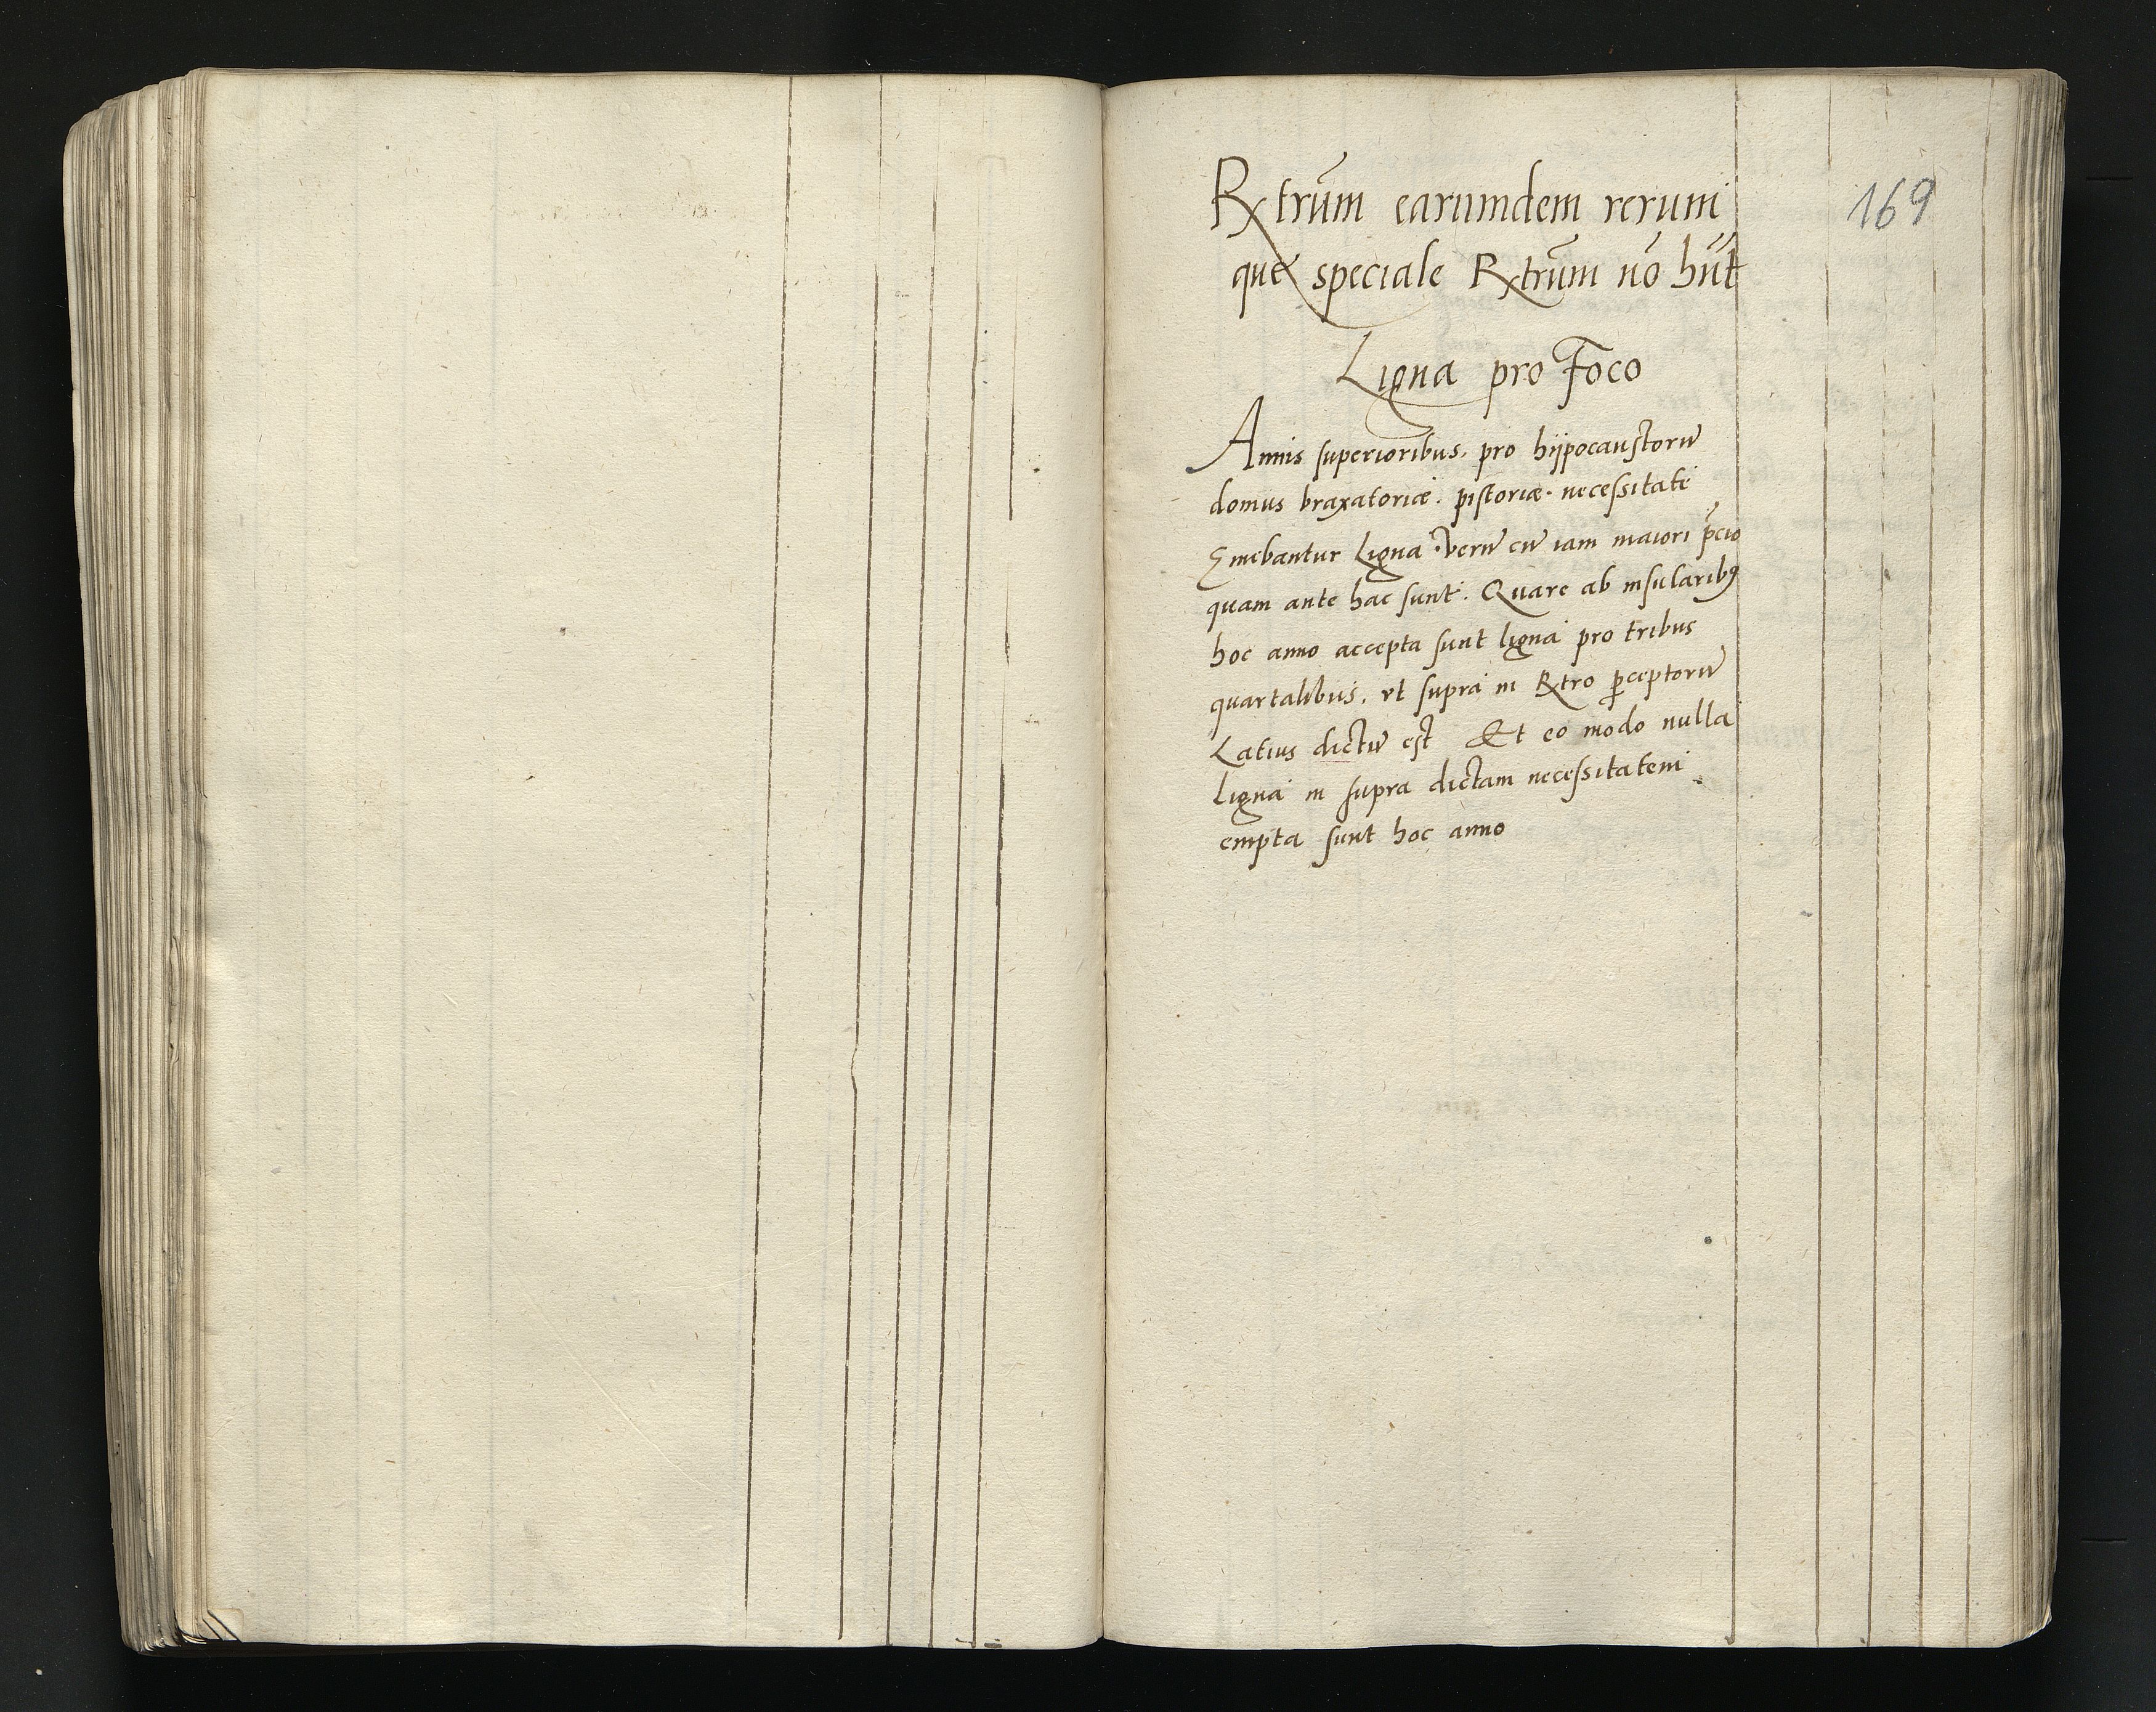 Rxtrūm earumdem rerum
169
que speciale Rxtrūm nō hūt
Ligna pro Foco
Annis superioribus. pro hÿpocaustorū
domus braxatoriæ. pistoriæ. necessitate
Emebantur Ligna. verū cū iam maiori p̄cio
quam ante hac sunt. Quare ab insularibꝰ
hoc anno accepta sunt ligna pro tribus
quartalibus. vt supra in Rxtro ꝑceptorū
Latius dictū est Et eo modo nulla
Ligna in supra dictam necessitatem
empta sunt hoc anno